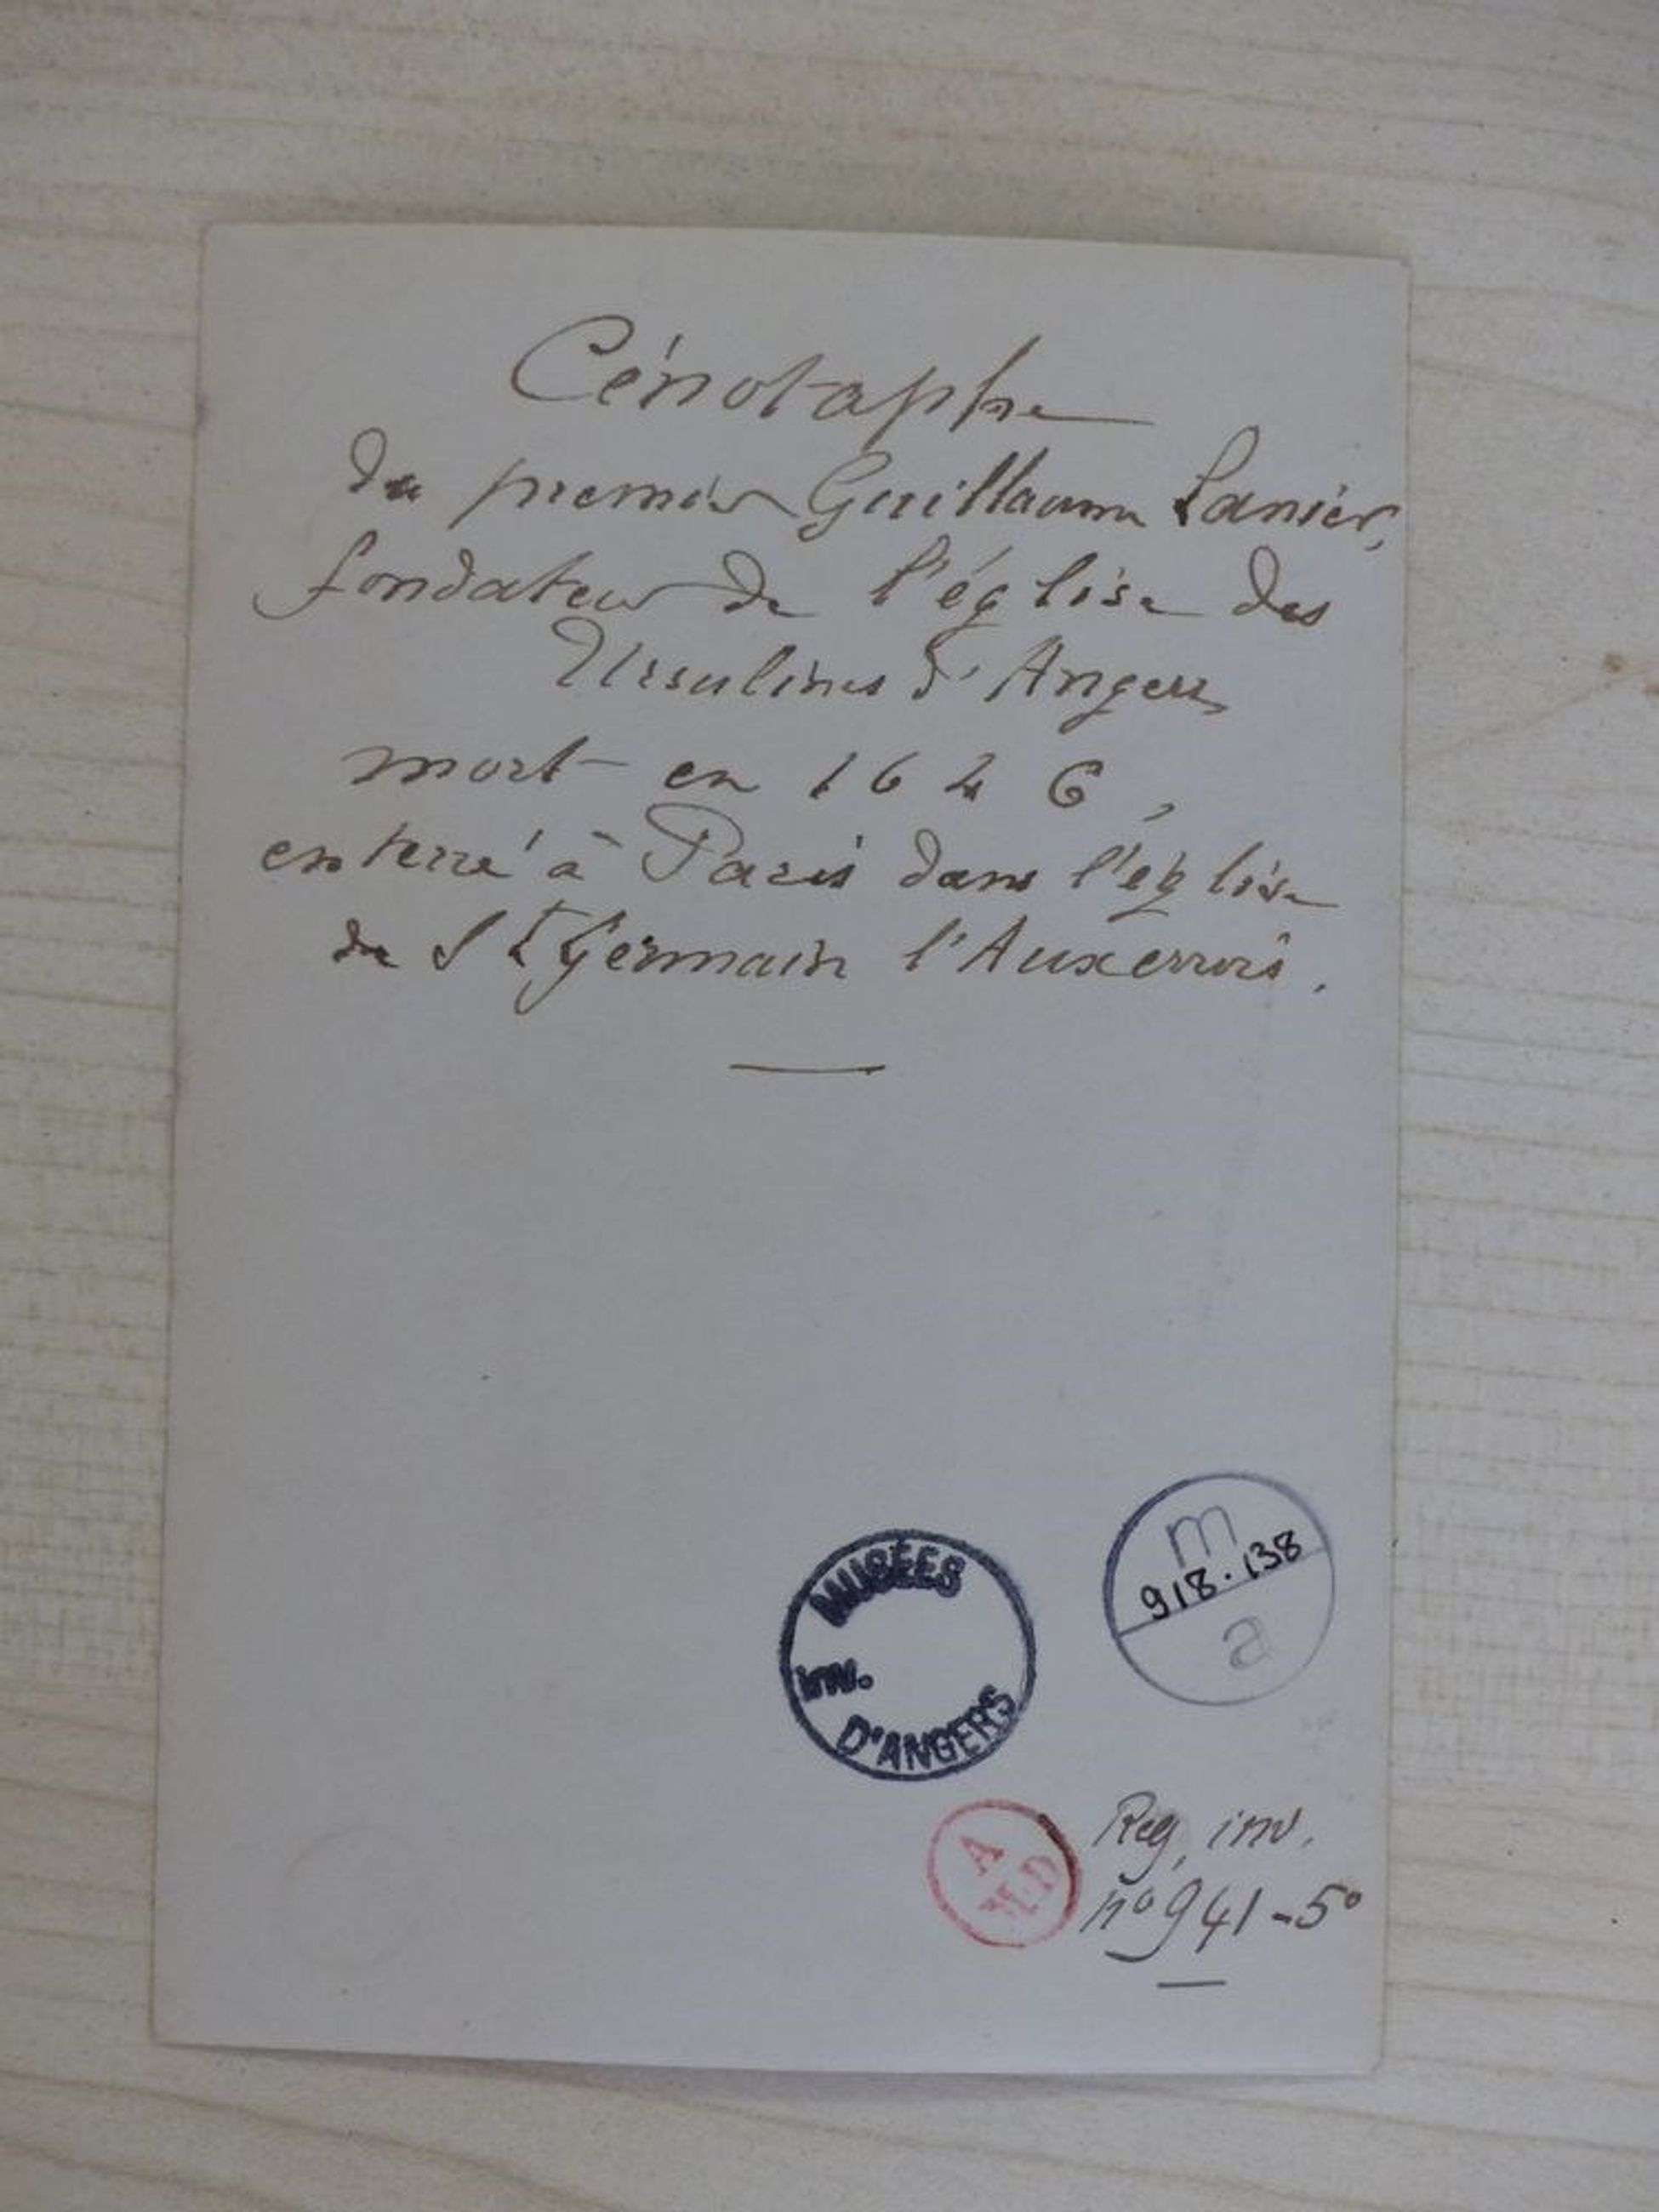 Cénotaphe
du premier Guillaume Lanier,
fondateur de l'église des
Ursulines d'Angers
mort en 1646,
enterré à Paris dans l'église
de St Germain l'Auxerrois.
MUSÉES
inv.
D'ANGERS
m
918.138
a
A
M.D
Reg. inv.
nº 941-5º